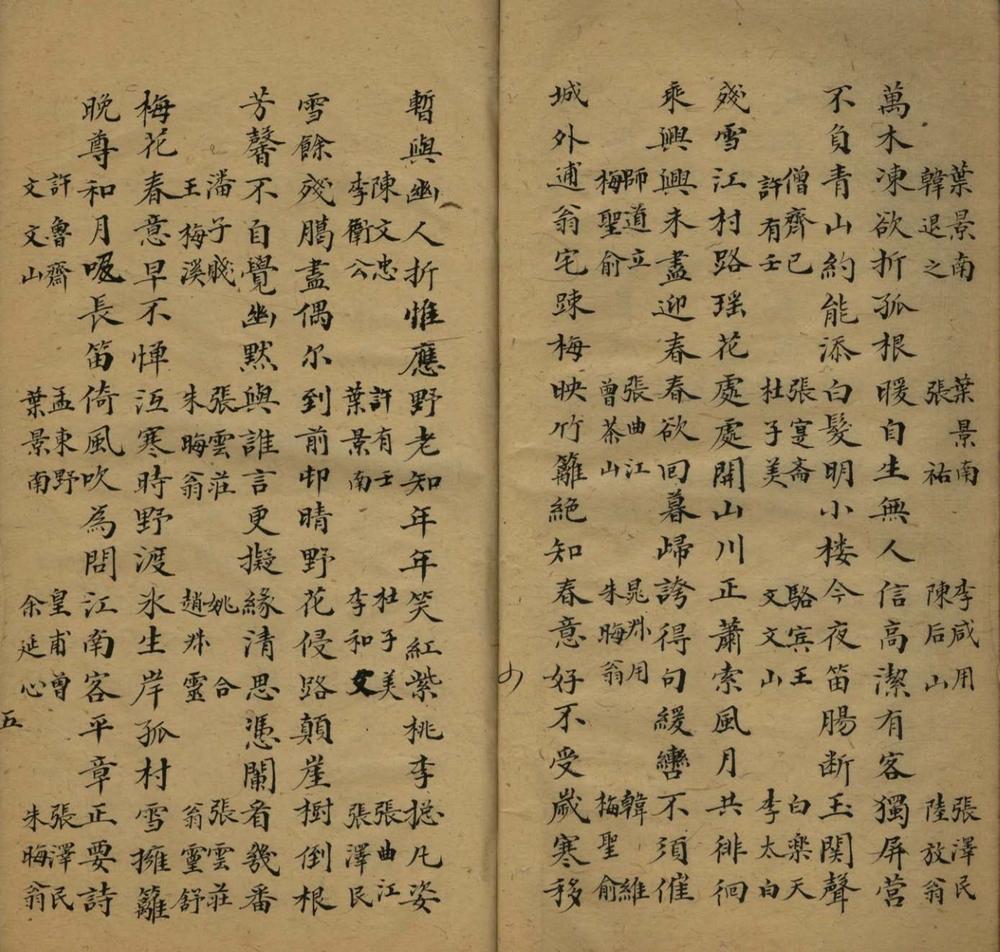 葉景南 葉景南 李咸用 張澤民
韓退之 張祐 陳后山 陸放翁
萬木凍欲折孤根暖自生無人信高潔有客獨屏營
不負青山約能添白髮明小楼今夜笛腸断玉関聲
僧齊己 張寔斋 駱賓王 白樂天
許有壬 杜子美 文文山 李太白
殘雪江村路瑶花處處開山川正蕭索風月共徘徊
乘興興未盡迎春春欲回暮歸誇得句緩轡不須催
師道立 張曲江 晁叔用 韓維
梅聖俞 曾茶山 朱晦翁 梅聖俞
城外逋翁宅踈梅映竹籬絶知春意好不受歲寒移
暫與幽人折惟應野老知年年笑紅紫桃李揔凡姿
陳文忠 許有壬 杜子美 張曲江
李衛公 葉景南 李和文 張澤民
雪餘殘臈盡偶尔到前邨晴野花侵路顛崖樹倒根
芳馨不自覺幽默與誰言更擬緣清思憑闌看幾番
潘子賤 張雲莊 姚合 張雲莊
王梅溪 朱晦翁 趙叔靈 翁靈舒
梅花春意早不憚沍寒時野渡氷生岸孤村雪擁籬
晚尊和月吸長笛倚風吹為問江南客平章正要詩
許魯齋 孟東野 皇甫曾 張澤民
文文山 葉景南 余延心 朱晦翁
五